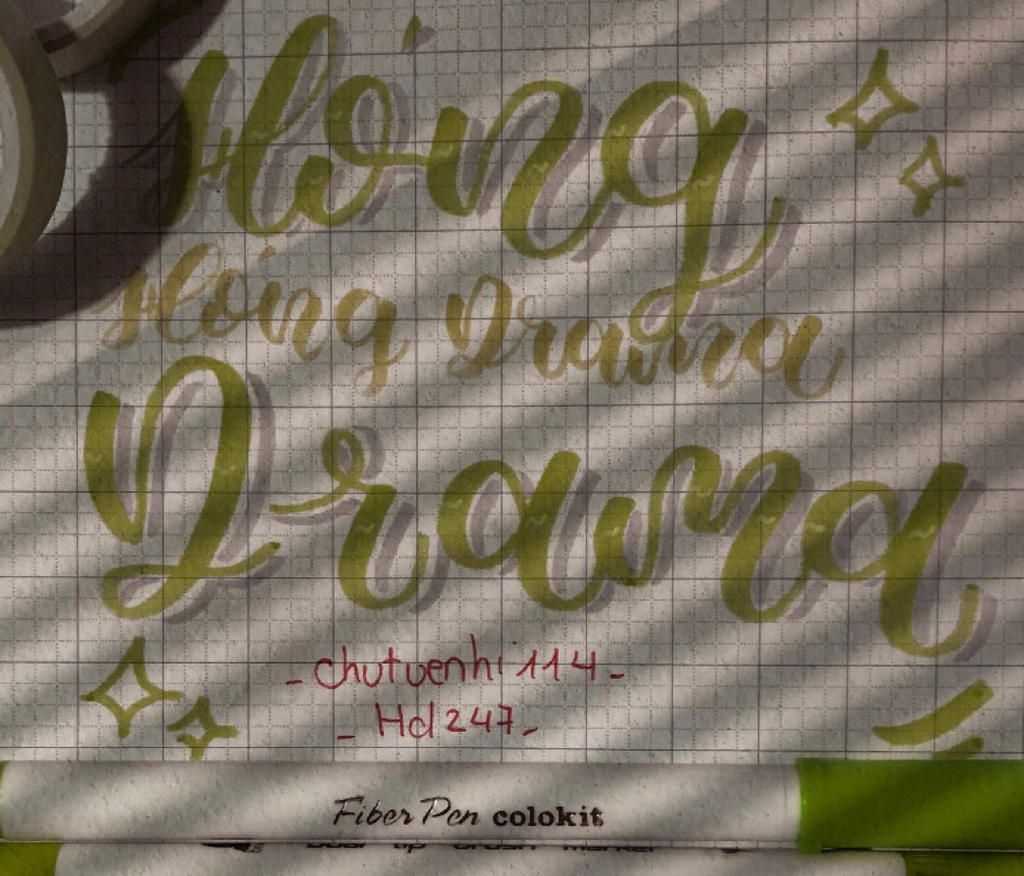 Hóng
Hóng Drama
Drama
- chutuenhi 114 -
- Hd 247 -
Fiber Pen colokit